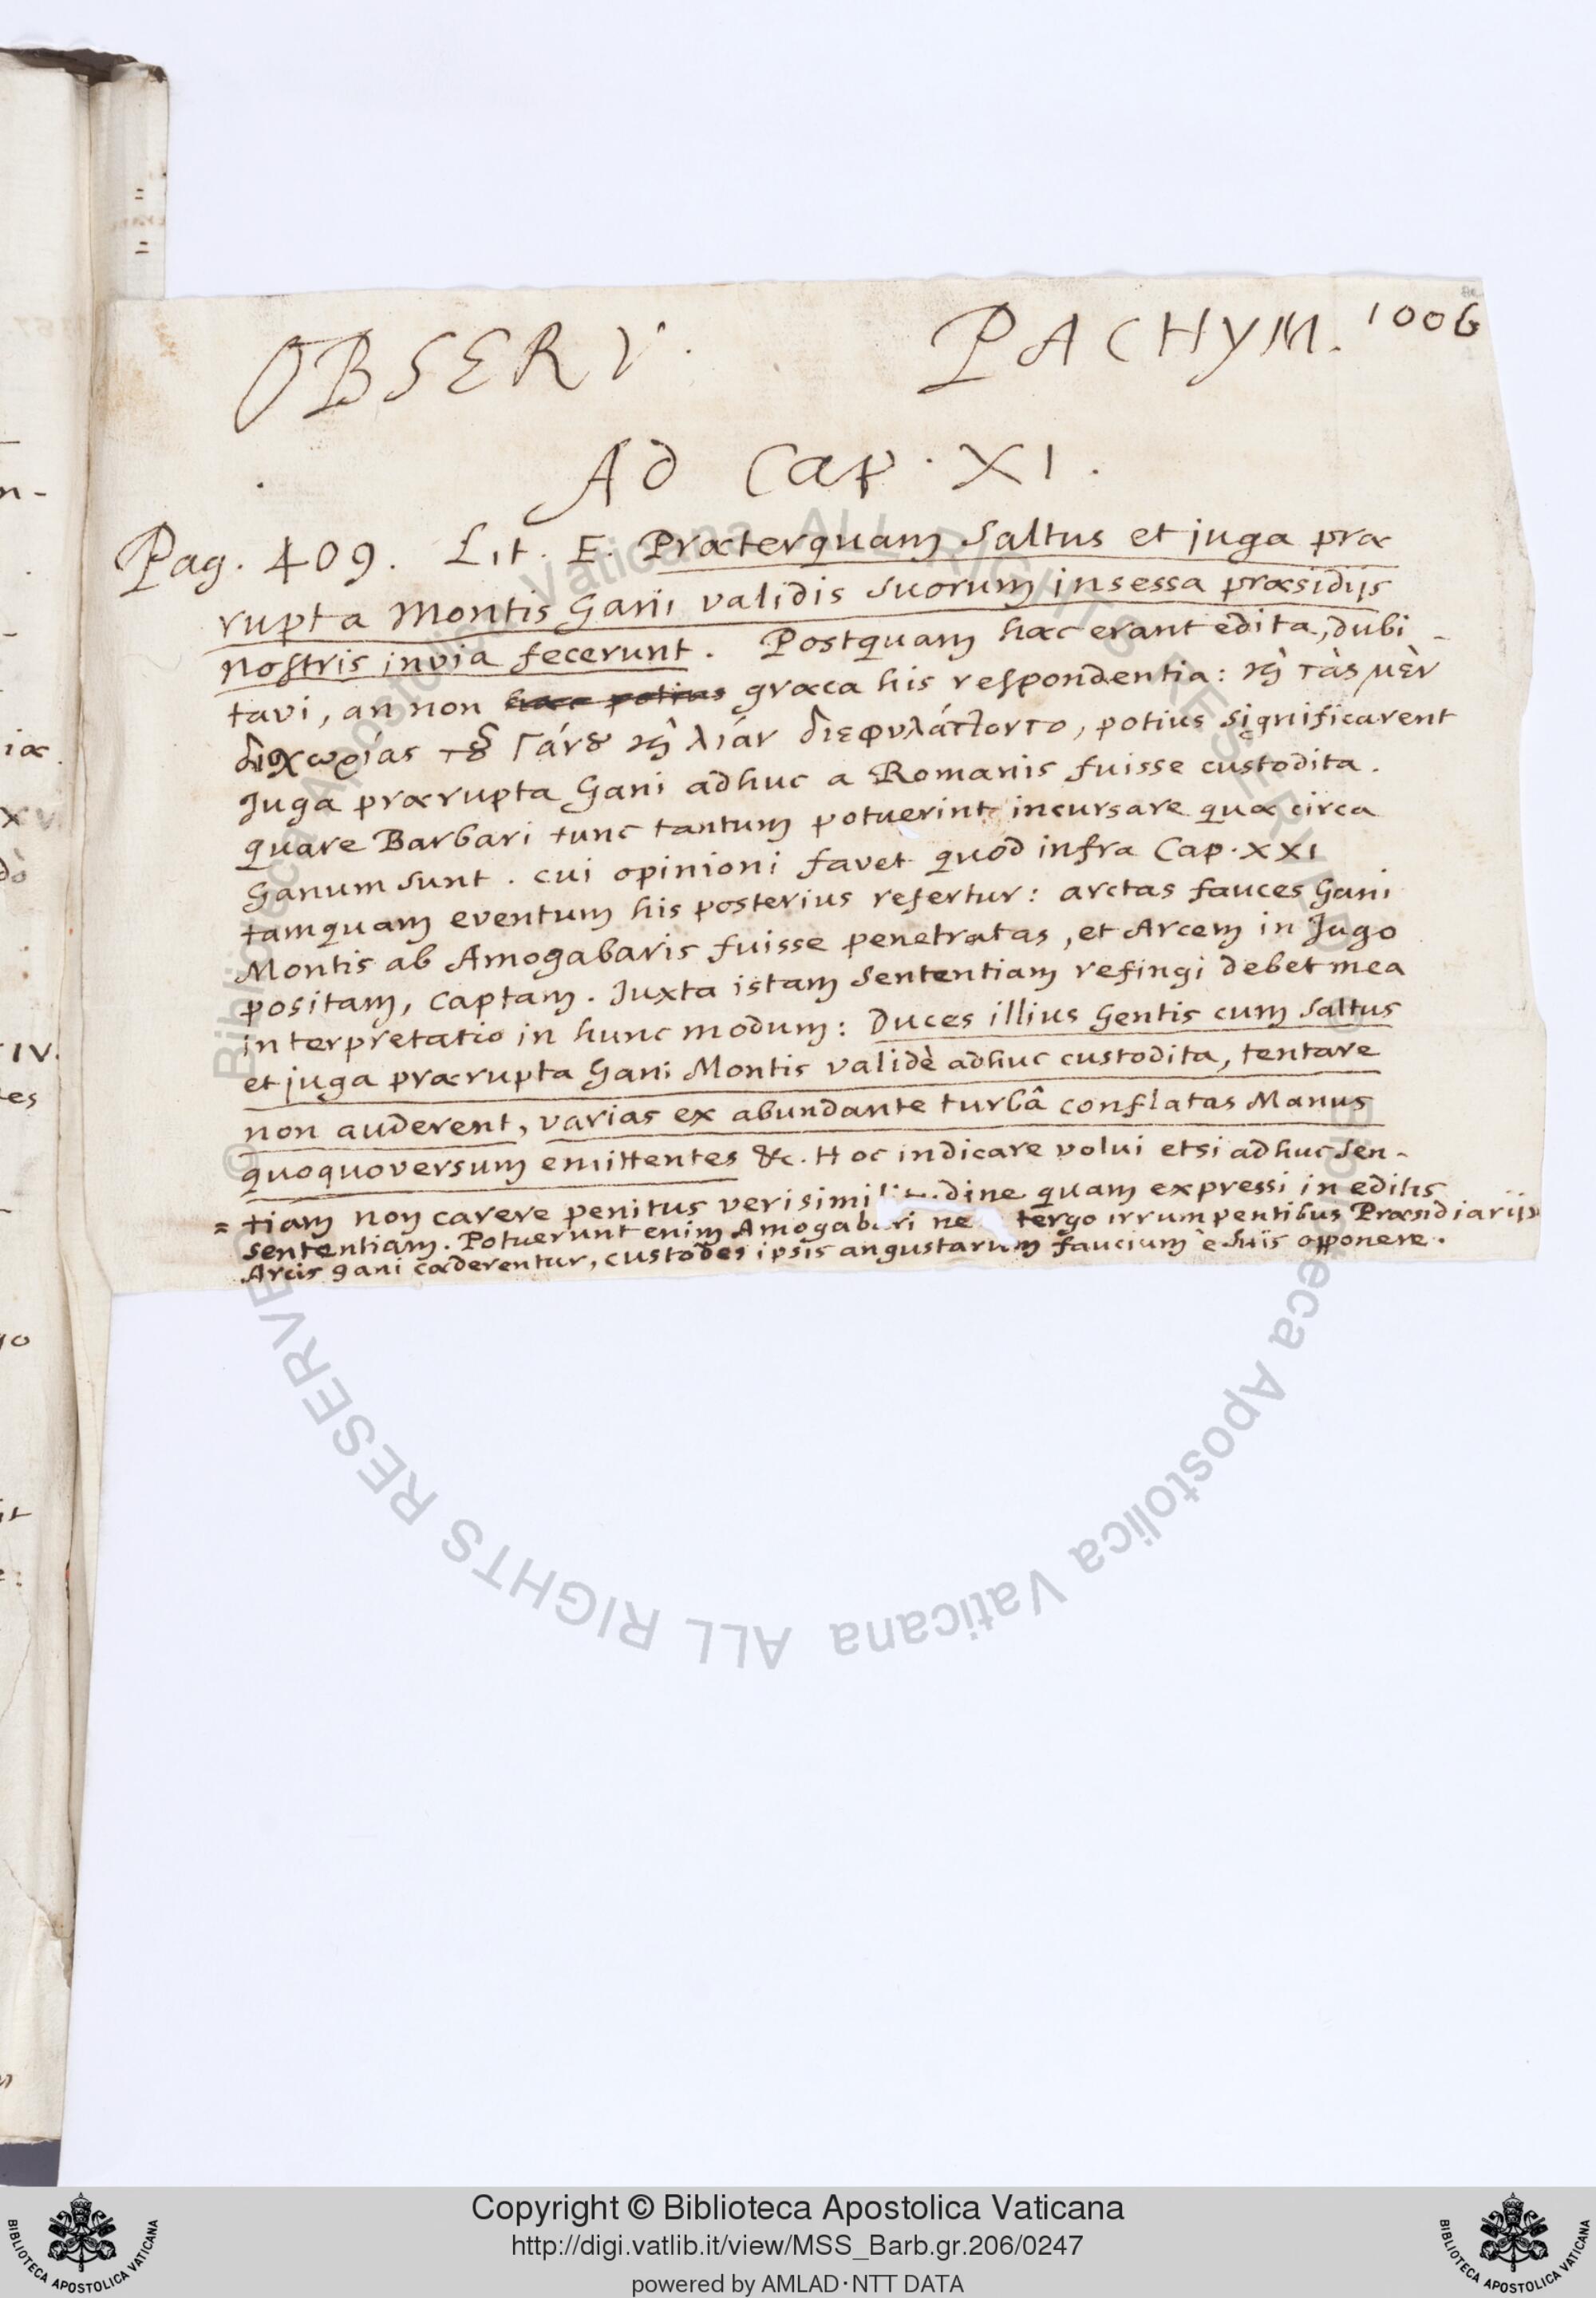 OBSERV. PACHYM. 1006
Ad Cap. XI.
Pag. 409. Lit. E. Præterquam saltus et juga præ
rupta Montis Gani validis suorum insessa præsidijs
nostris invia fecerunt. Postquam hæc erant edita, dubi-
tavi, an non hæc potius græca his respondentia: καὶ τὰς μὲν
δυσχωρίας τοῦ Γάνου καὶ λίαν διεφυλάττοντο, potius significarent
Juga prærupta Gani adhuc a Romanis fuisse custodita.
quare Barbari tunc tantum potuerint incursare quæ circa
Ganum sunt. cui opinioni favet quod infra Cap. XXI
tamquam eventum his posterius refertur: arctas fauces Gani
Montis ab Amogabaris fuisse penetratas, et Arcem in Jugo
positam, captam. Juxta istam sententiam refingi debet mea
interpretatio in hunc modum: Duces illius Gentis cum saltus
et juga prærupta Gani Montis validè adhuc custodita, tentare
non auderent, varias ex abundante turbâ conflatas Manus
quoquoversum emittentes &c. Hoc indicare volui etsi adhuc sen-
= tiam non carere penitus verisimilitudine quam expressi in editis
sententiam. Potuerunt enim Amogabari ne tergo irrumpentibus Præsidiarijs
Arcis gani cæderentur, custodes ipsis angustarum faucium è suis opponere.
© Biblioteca Apostolica Vaticana ALL RIGHTS RESERVED
© Biblioteca Apostolica Vaticana ALL RIGHTS RESERVED
Copyright © Biblioteca Apostolica Vaticana
http://digi.vatlib.it/view/MSS_Barb.gr.206/0247
powered by AMLAD·NTT DATA
BIBLIOTECA APOSTOLICA VATICANA
BIBLIOTECA APOSTOLICA VATICANA